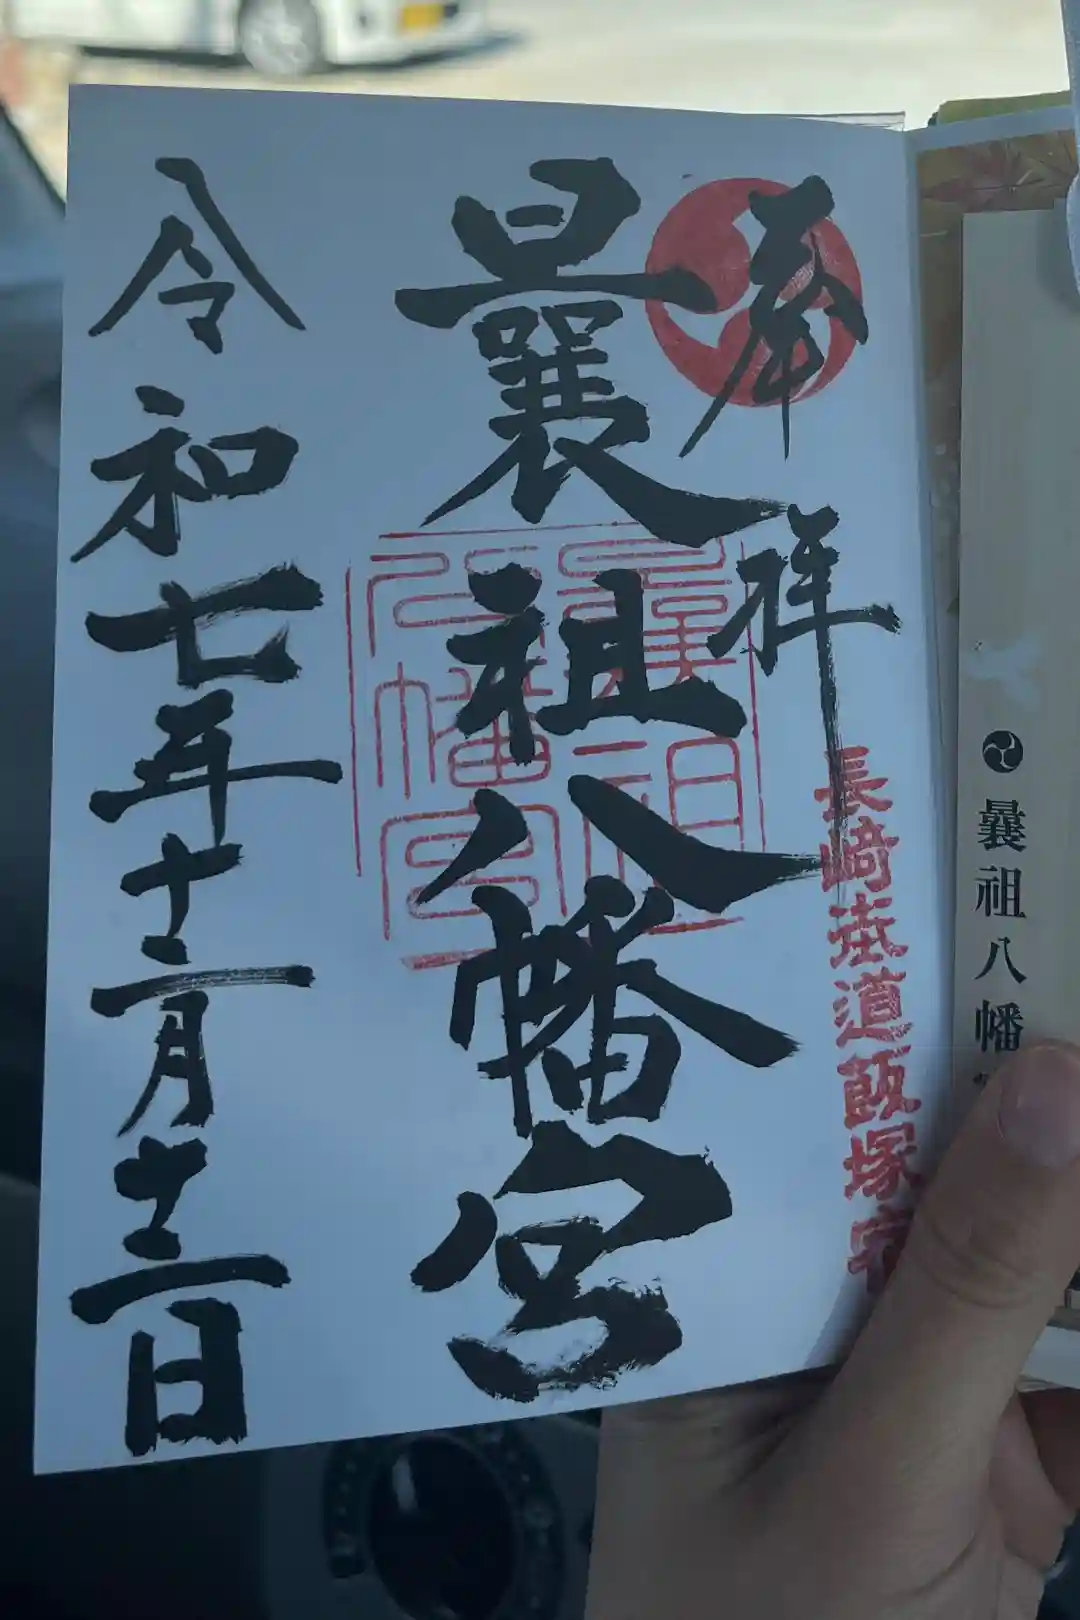 曩祖八幡宮
奉拝
長崎街道飯塚宿
曩祖八幡宮
曩祖八幡宮
令和七年十二月十二日